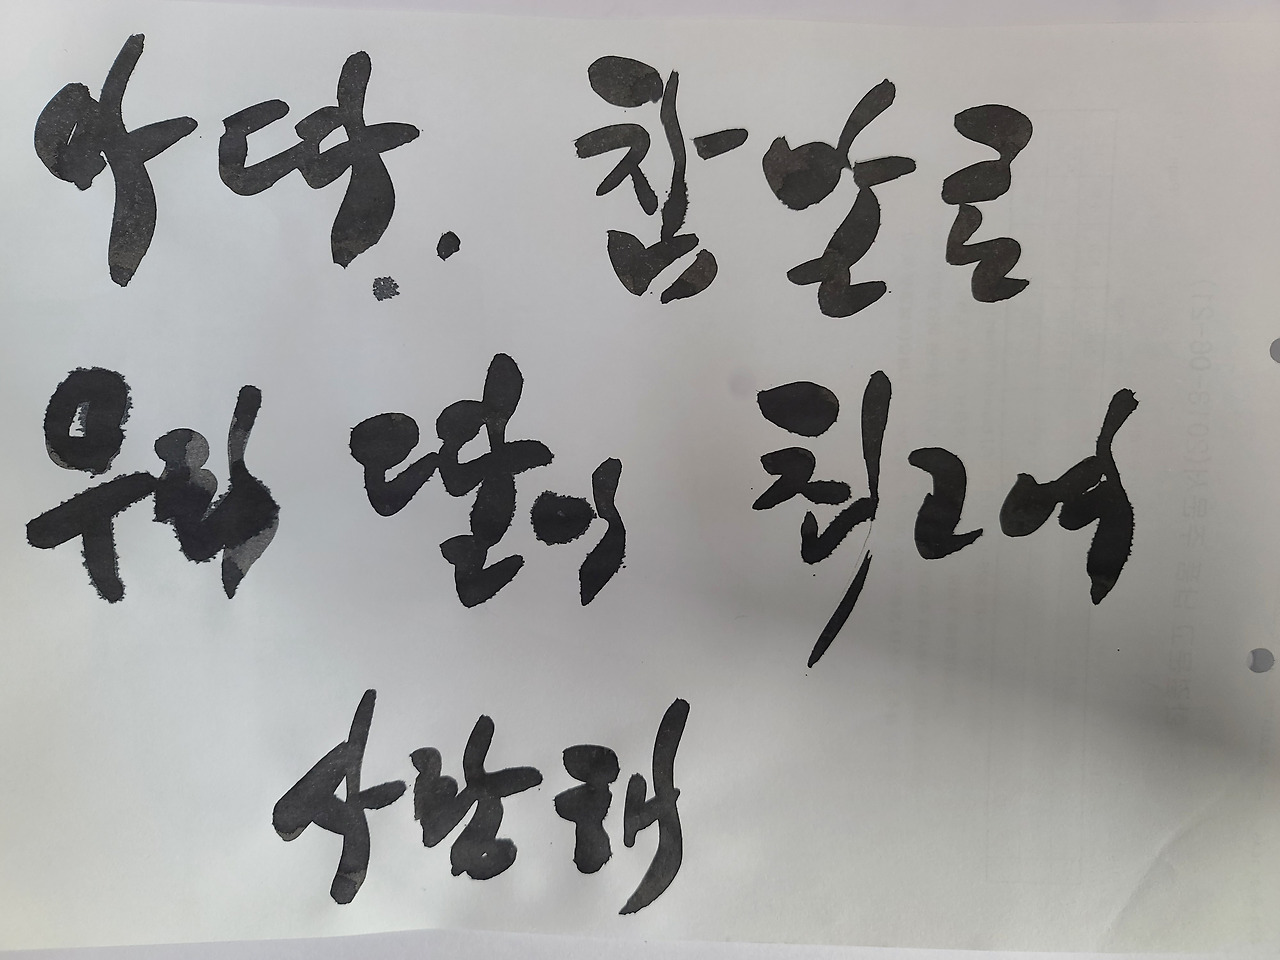 아따. 참말로
우리 딸이 최고여
사랑해